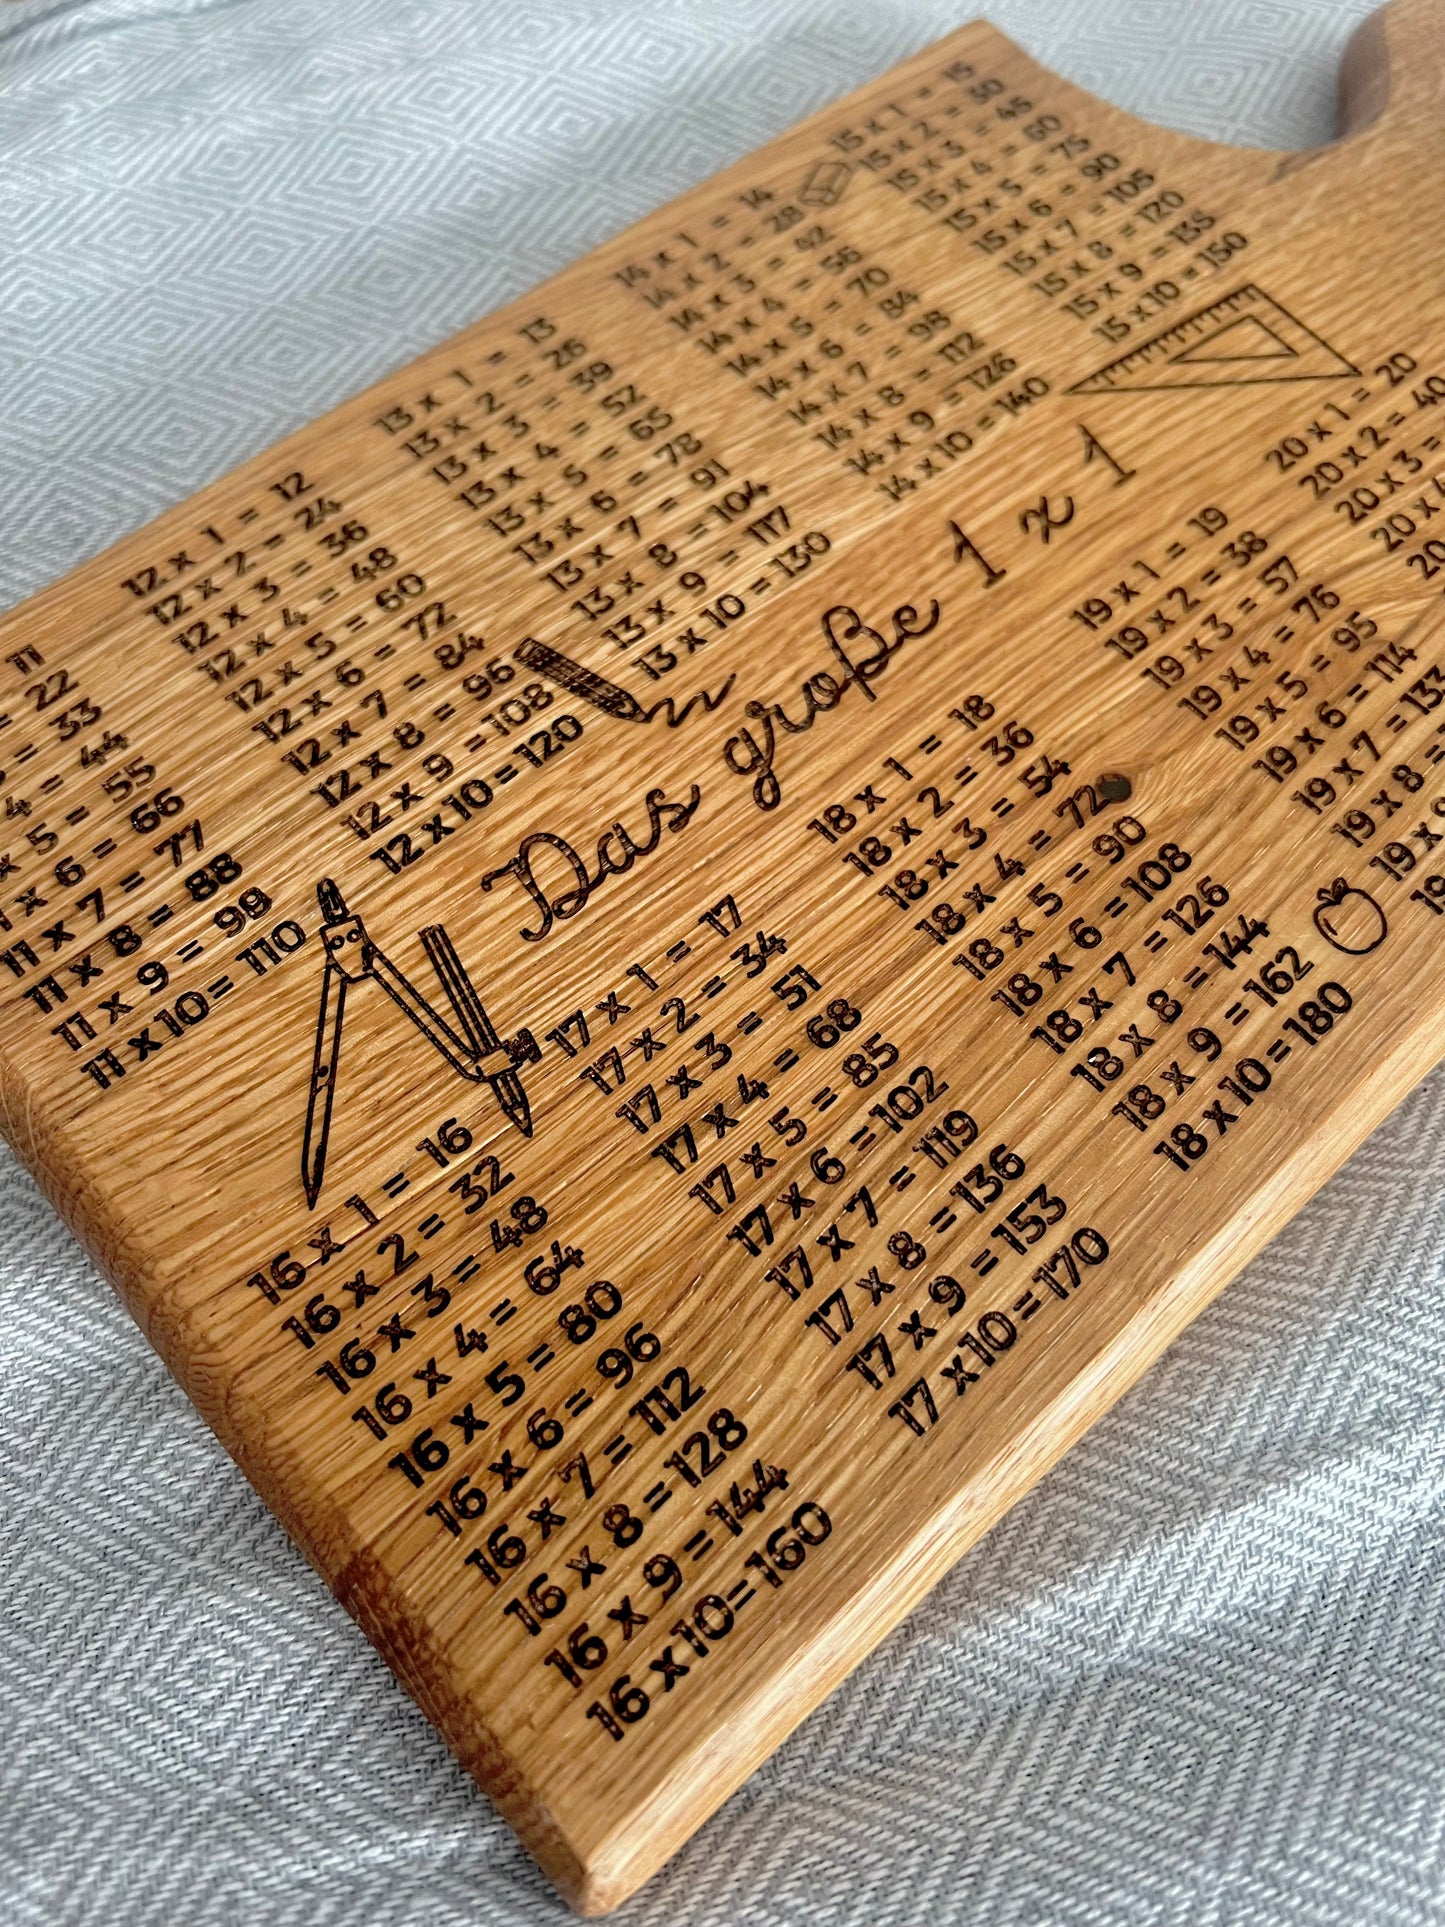 11
= 22
= 33
4 = 44
x 5 = 55
x 6 = 66
11 x 7 = 77
11 x 8 = 88
11 x 9 = 99
11 x 10 = 110
12 x 1 = 12
12 x 2 = 24
12 x 3 = 36
12 x 4 = 48
12 x 5 = 60
12 x 6 = 72
12 x 7 = 84
12 x 8 = 96
12 x 9 = 108
12 x 10 = 120
13 x 1 = 13
13 x 2 = 26
13 x 3 = 39
13 x 4 = 52
13 x 5 = 65
13 x 6 = 78
13 x 7 = 91
13 x 8 = 104
13 x 9 = 117
13 x 10 = 130
14 x 1 = 14
14 x 2 = 28
14 x 3 = 42
14 x 4 = 56
14 x 5 = 70
14 x 6 = 84
14 x 7 = 98
14 x 8 = 112
14 x 9 = 126
14 x 10 = 140
15 x 1 = 15
15 x 2 = 30
15 x 3 = 45
15 x 4 = 60
15 x 5 = 75
15 x 6 = 90
15 x 7 = 105
15 x 8 = 120
15 x 9 = 135
15 x 10 = 150
Das große 1 x 1
16 x 1 = 16
16 x 2 = 32
16 x 3 = 48
16 x 4 = 64
16 x 5 = 80
16 x 6 = 96
16 x 7 = 112
16 x 8 = 128
16 x 9 = 144
16 x 10 = 160
17 x 1 = 17
17 x 2 = 34
17 x 3 = 51
17 x 4 = 68
17 x 5 = 85
17 x 6 = 102
17 x 7 = 119
17 x 8 = 136
17 x 9 = 153
17 x 10 = 170
18 x 1 = 18
18 x 2 = 36
18 x 3 = 54
18 x 4 = 72
18 x 5 = 90
18 x 6 = 108
18 x 7 = 126
18 x 8 = 144
18 x 9 = 162
18 x 10 = 180
19 x 1 = 19
19 x 2 = 38
19 x 3 = 57
19 x 4 = 76
19 x 5 = 95
19 x 6 = 114
19 x 7 = 133
19 x 8 =
19 x
19
20 x 1 = 20
20 x 2 = 40
20 x 3 =
20 x 4
20